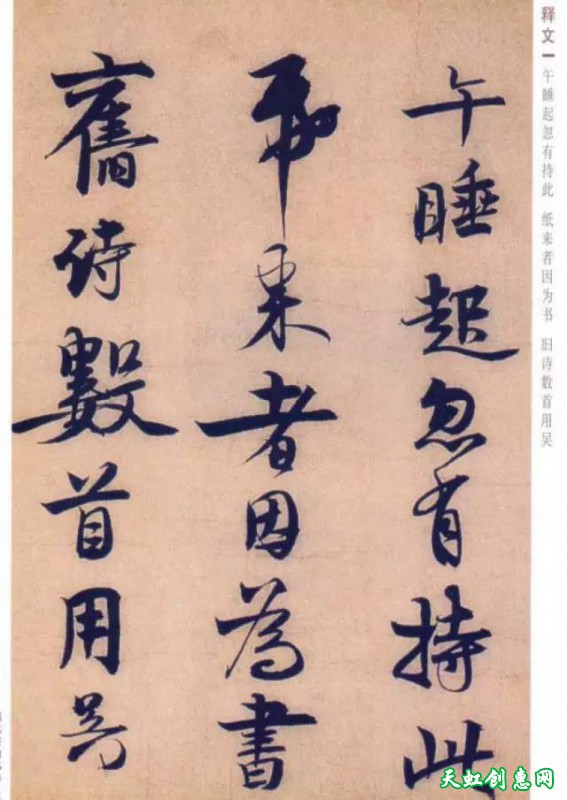 释文一 午睡起忽有持此 纸来者因为书 旧诗数首用吴
午睡起忽有持此
帋来者因為書
舊詩數首用吴
天虹创惠网